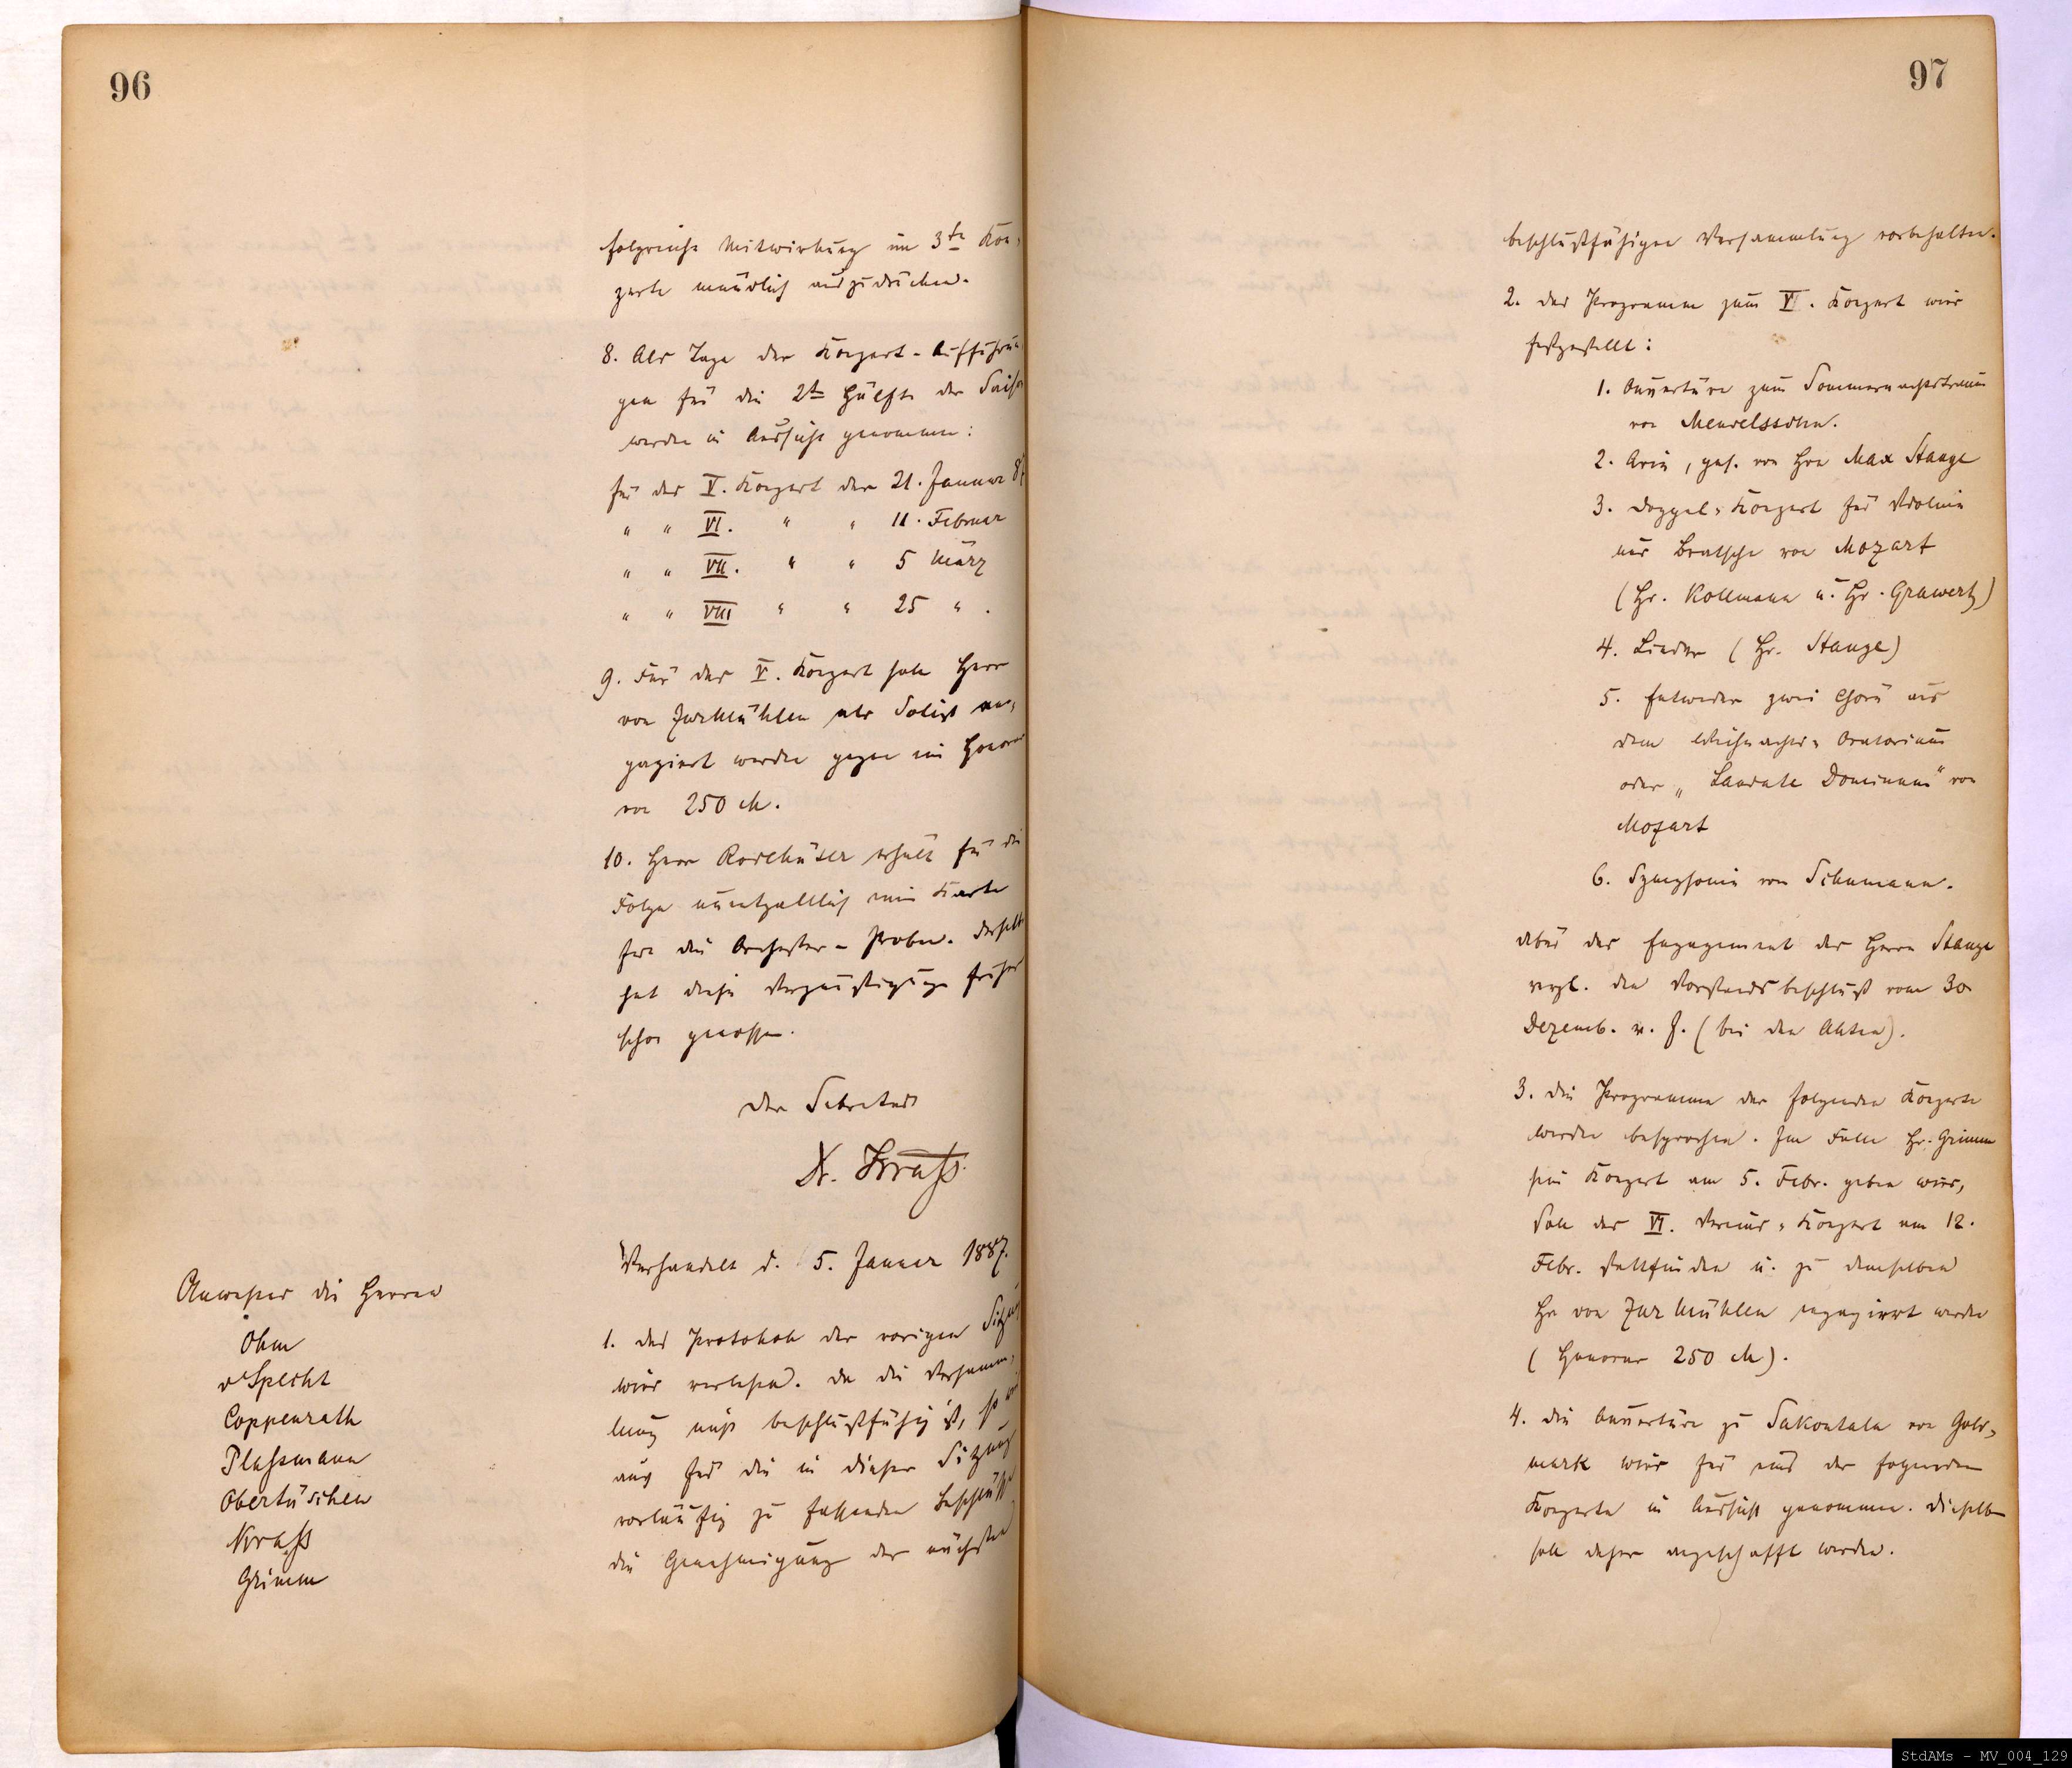 96
folgreiche Mitwirkung im 3te Kon-
zerte mündlich auszudrücken.
8. Als Tage der Konzert-Aufführun
gen für die 2te Hälfte der Saison
werden in Aussicht genommen:
für das V. Konzert der 21. Januar 87
" " VI. " " 11. Februar
" " VII. " " 5 März
" " VIII " " 25 " .
9. Für das V. Konzert soll Herr
von Zurmühlen als Solist en-
gagiert werden gegen ein Honorar
von 250 M.
10. Herr Rordhäuser erhält für die
Folge unentgeltlich eine Karte
für die Orchester-Proben. Derselbe
hat diese Vergünstigung früher
schon genossen.
Der Sekretär
N. Krass.
Verhandelt d. 5. Januar 1887.
Anwesend die Herren
Ohm
v Specht
Coppenrath
Plassmann
Obertüschen
Krass
Grimm
1. Das Protokoll der vorigen Sitzung
wird verlesen. Da die Versamm-
lung nicht beschlußfähig ist, so
auch für die in dieser Sitzung
vorläufig zu fassenden Beschlüsse
die Genehmigung der nächsten
97
beschlußfähigen Versammlung vorbehalten.
2. Das Programm zum VI. Konzert wird
festgestellt:
1. Ouvertüre zum Sommernachtstraum
von Mendelssohn.
2. Arie, ges. von Hrn Max Stange
3. Doppel-Konzert für Violine
und Bratsche von Mozart
(Hr. Kollmann u. Hr. Grawert)
4. Lieder (Hr. Stange)
5. Entweder zwei Chöre aus
dem Weihnachts-Oratorium
oder „Laudate Dominum" von
Mozart
6. Symphonie von Schumann.
Über das Engagement des Herrn Stange
vergl. den Vorstandsbeschluß vom 30
Dezemb. v. J. (bei den Akten).
3. Die Programme der folgenden Konzerte
werden besprochen. Im Falle Hr. Grimm
sein Konzert am 5. Febr. geben wird,
soll das VI. Vereins-Konzert am 12.
Febr. stattfinden u. zu demselben
Hr von Zur Mühlen engagirt werden
(Honorar 250 M).
4. Die Ouvertüre zu Sakontala von Gold-
mark wird für eins der folgenden
Konzerte in Aussicht genommen. Dieselbe
soll daher angeschafft werden.
StdAMs - MV_004_129